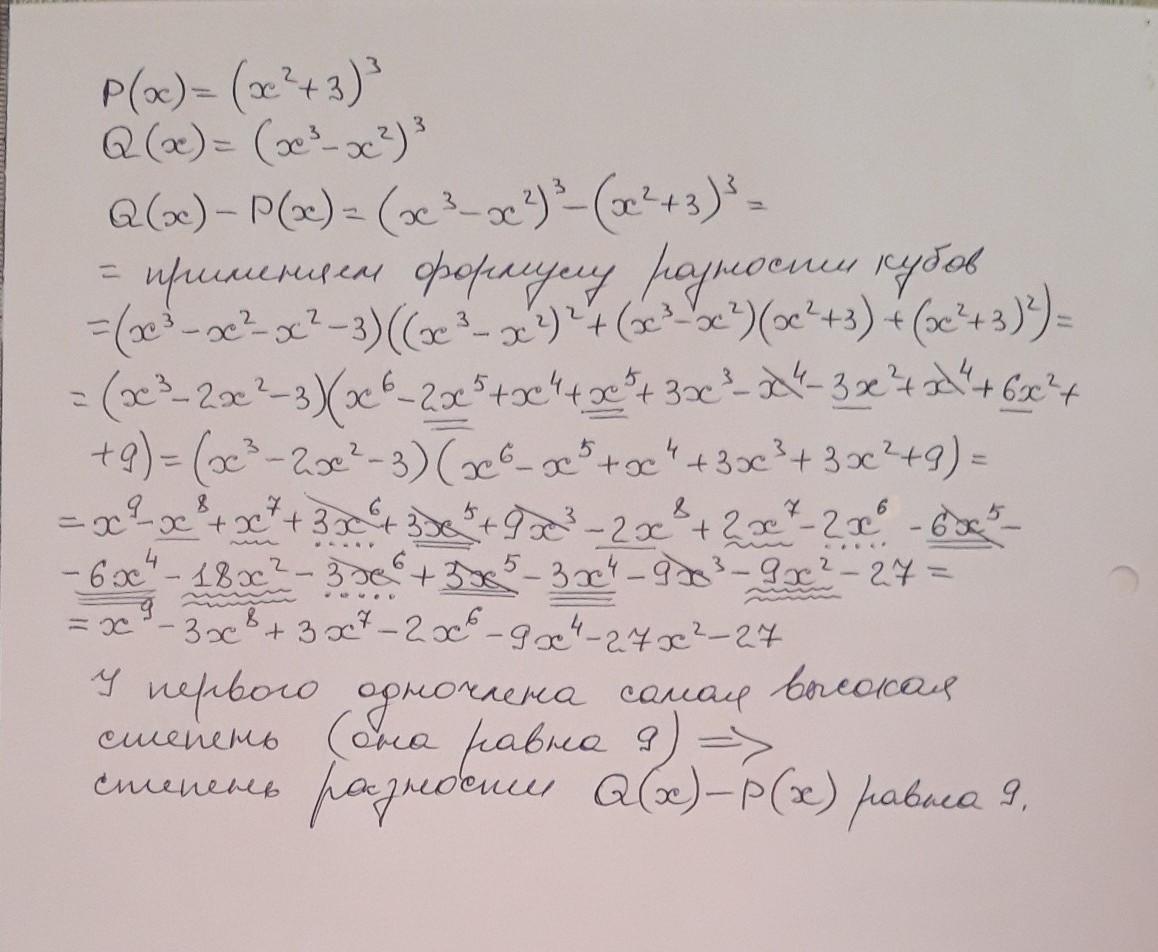 P(x) = (x² + 3)³
Q(x) = (x³ - x²)³
Q(x) - P(x) = (x³ - x²)³ - (x² + 3)³ =
= применяем формулу разности кубов
= (x³ - x² - x² - 3)((x³ - x²)² + (x³ - x²)(x² + 3) + (x² + 3)²) =
= (x³ - 2x² - 3)(x⁶ - 2x⁵ + x⁴ + x⁵ + 3x³ - x⁴ - 3x² + x⁴ + 6x² +
+ 9) = (x³ - 2x² - 3)(x⁶ - x⁵ + x⁴ + 3x³ + 3x² + 9) =
= x⁹ - x⁸ + x⁷ + 3x⁶ + 3x⁵ + 9x³ - 2x⁸ + 2x⁷ - 2x⁶ - 6x⁵ -
- 6x⁴ - 18x² - 3x⁶ + 3x⁵ - 3x⁴ - 9x³ - 9x² - 27 =
= x⁹ - 3x⁸ + 3x⁷ - 2x⁶ - 9x⁴ - 27x² - 27
У первого одночлена самая высокая
степень (она равна 9) =>
степень разности Q(x) - P(x) равна 9.